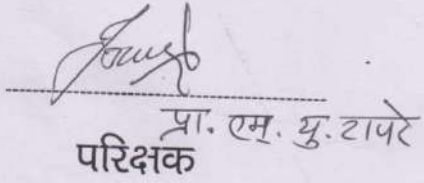 प्रा. एम्. यु. टापरे
परिक्षक